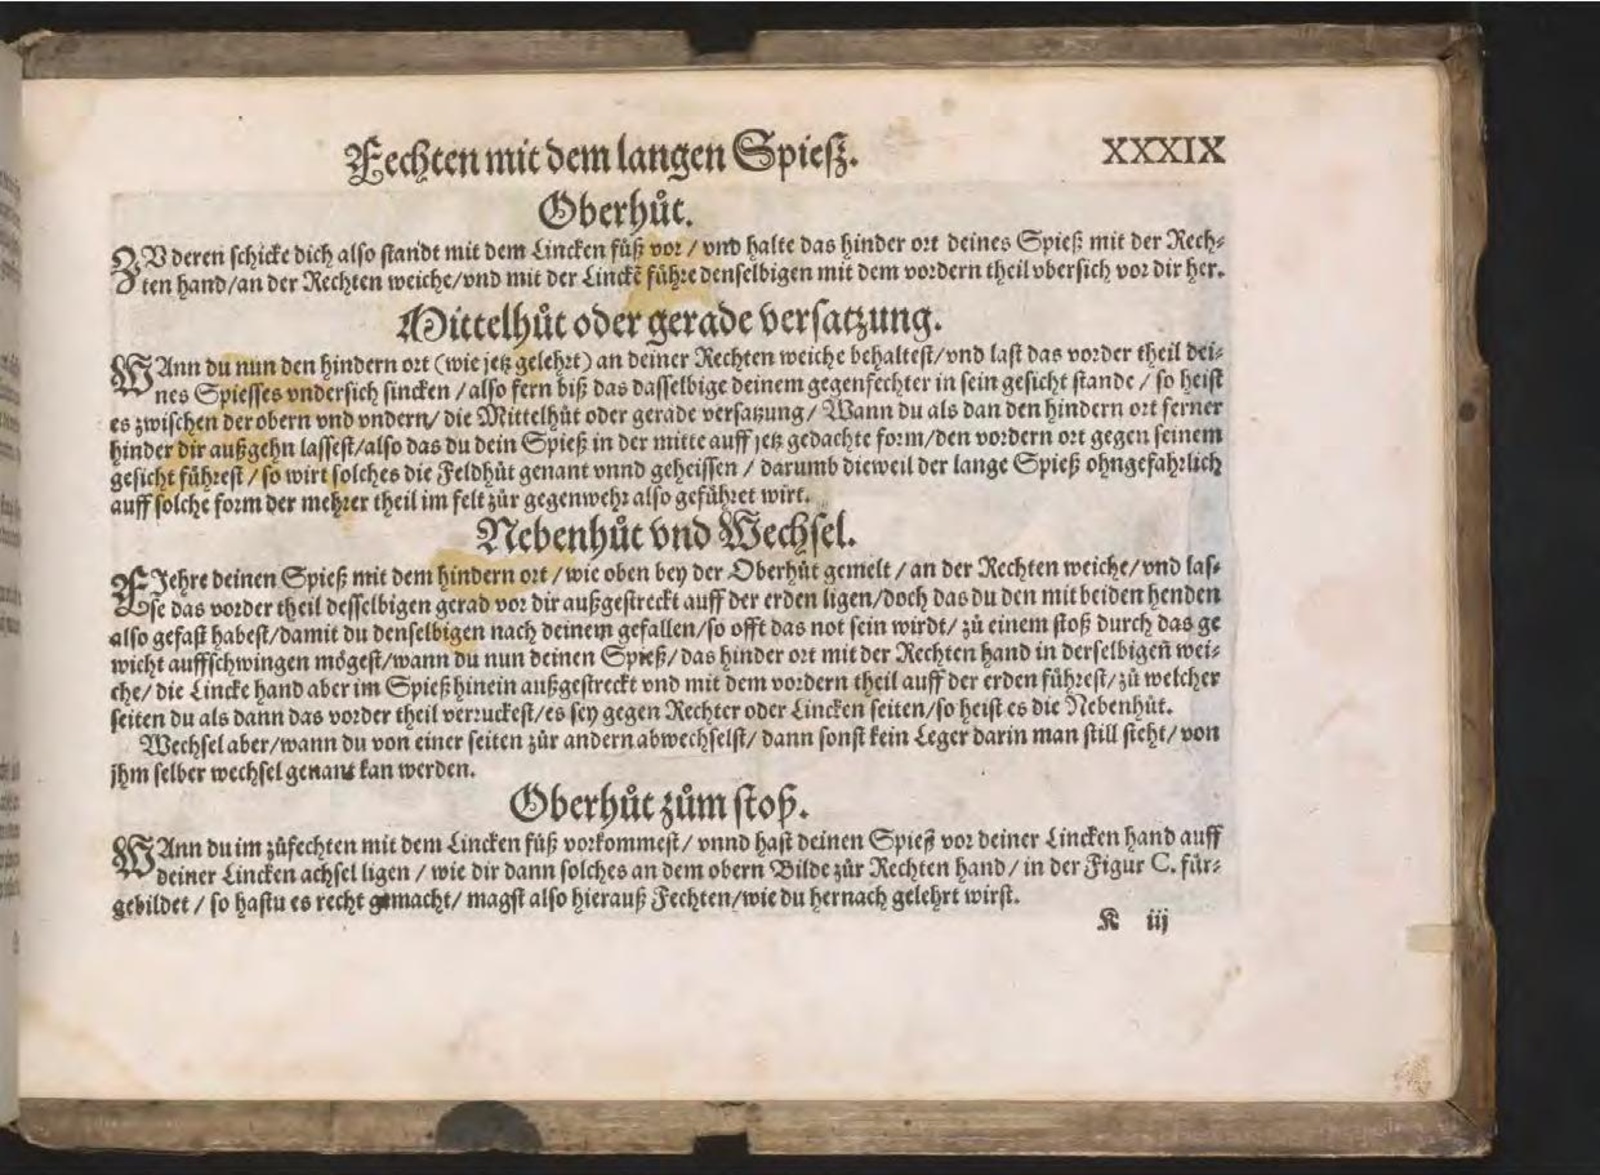 Fechten mit dem langen Spiesz.
XXXIX
Oberhůt.
ZV deren schicke dich also standt mit dem Lincken fůß vor / vnd halte das hinder ort deines Spieß mit der Rech⸗
ten hand/an der Rechten weiche/vnd mit der Linckẽ führe denselbigen mit dem vordern theil vbersich vor dir her.
Mittelhůt oder gerade versatzung.
WAnn du nun den hindern ort (wie jetz gelehrt) an deiner Rechten weiche behaltest/vnd last das vorder theil dei⸗
nes Spiesses vndersich sincken / also fern biß das dasselbige deinem gegenfechter in sein gesicht stande / so heist
es zwischen der obern vnd vndern/ die Mittelhůt oder gerade versatzung/ Wann du als dan den hindern ort ferner
hinder dir außgehn lassest/also das du dein Spieß in der mitte auff jetz gedachte form/den vordern ort gegen seinem
gesicht führest / so wirt solches die Feldhůt genant vnnd geheissen / darumb dieweil der lange Spieß ohngefahrlich
auff solche form der mehrer theil im felt zůr gegenwehr also geführet wirt.
Nebenhůt vnd Wechsel.
FJehre deinen Spieß mit dem hindern ort / wie oben bey der Oberhůt gemelt / an der Rechten weiche/ vnd las⸗
se das vorder theil desselbigen gerad vor dir außgestreckt auff der erden ligen/doch das du den mit beiden henden
also gefast habest/damit du denselbigen nach deinem gefallen/so offt das not sein wirdt/ zů einem stoß durch das ge
wicht auffschwingen mögest/wann du nun deinen Spieß/das hinder ort mit der Rechten hand in derselbigeñ wei⸗
che/ die Lincke hand aber im Spieß hinein außgestreckt vnd mit dem vordern theil auff der erden führest/zů welcher
seiten du als dann das vorder theil verruckest/es sey gegen Rechter oder Lincken seiten/so heist es die Nebenhůt.
Wechsel aber/wann du von einer seiten zůr andern abwechselst/ dann sonst kein Leger darin man still steht/ von
jhm selber wechsel genant kan werden.
Oberhůt zům stoß.
WAnn du im zůfechten mit dem Lincken fůß vorkommest/ vnnd hast deinen Spieß vor deiner Lincken hand auff
deiner Lincken achsel ligen / wie dir dann solches an dem obern Bilde zůr Rechten hand / in der Figur C. für⸗
gebildet / so hastu es recht gemacht/ magst also hierauß Fechten/wie du hernach gelehrt wirst.
K iij